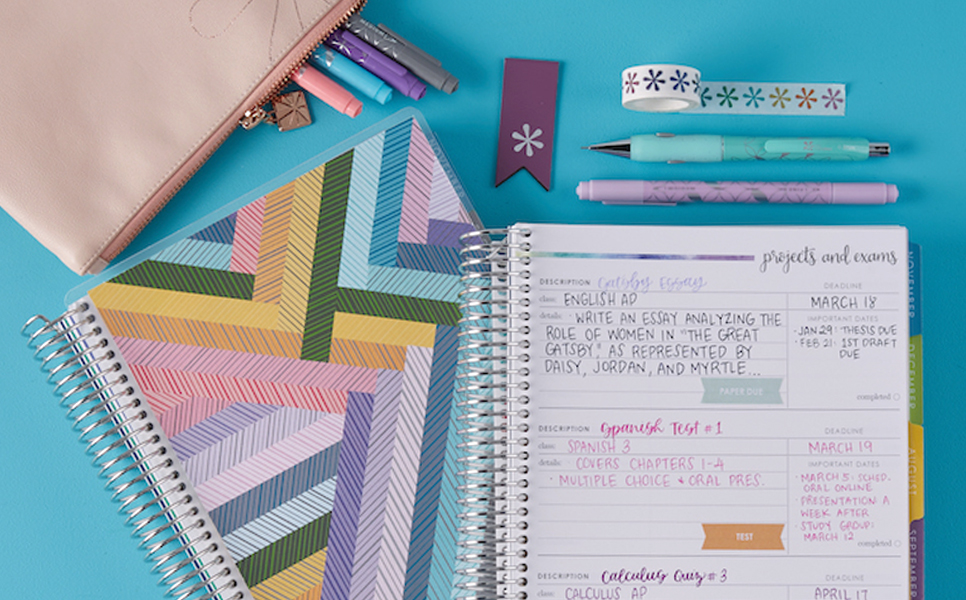 projects and exams
DESCRIPTION Gatsby Essay
DEADLINE
class: ENGLISH AP
MARCH 18
details: · WRITE AN ESSAY ANALYZING THE
ROLE OF WOMEN IN "THE GREAT
GATSBY," AS REPRESENTED BY
DAISY, JORDAN, AND MYRTLE...
IMPORTANT DATES
· JAN 29: THESIS DUE
· FEB 21: 1ST DRAFT
DUE
PAPER DUE
completed
DESCRIPTION Spanish Test #1
DEADLINE
class: SPANISH 3
MARCH 19
details: · COVERS CHAPTERS 1-4
· MULTIPLE CHOICE + ORAL PRES.
IMPORTANT DATES
· MARCH 5: SCHED.
ORAL ONLINE
· PRESENTATION A
WEEK AFTER
· STUDY GROUP:
MARCH 12
TEST
completed
DESCRIPTION Calculus Quiz #3
DEADLINE
class: CALCULUS AP
APRIL 17
NOVEMBER
DECEMBER
AUGUST
SEPTEMBER